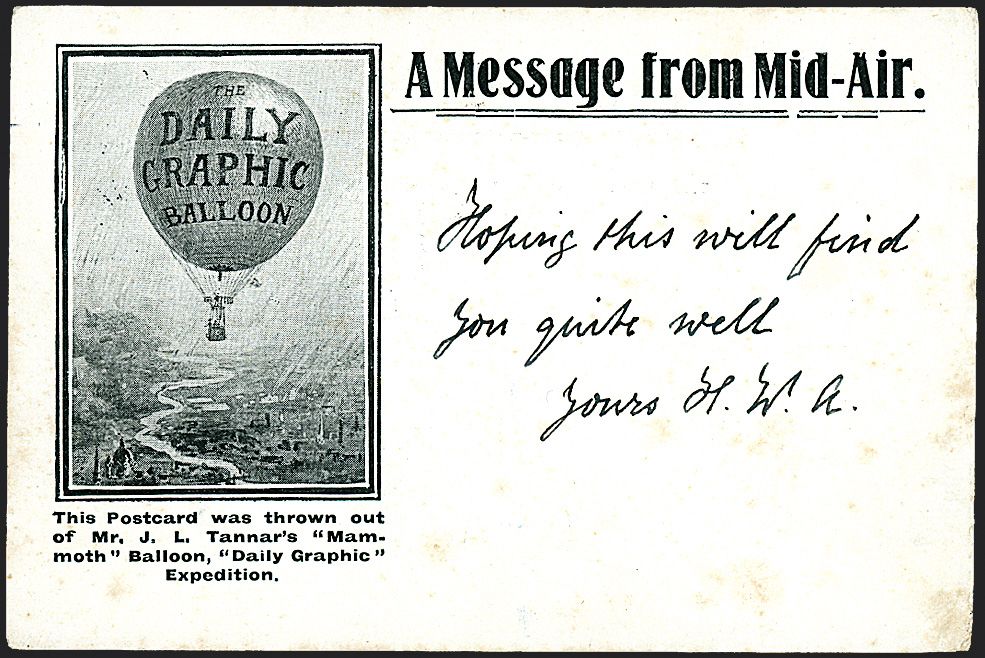 A Message from Mid-Air.
THE
DAILY
GRAPHIC
BALLOON
Hoping this will find
you quite well
yours H. W. A.
This Postcard was thrown out
of Mr. J. L. Tannar's "Mam-
moth" Balloon, "Daily Graphic"
Expedition.